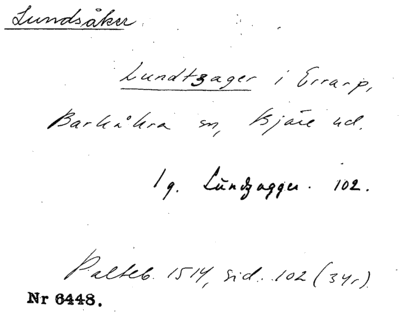 Lundsåker
Lundtzager i Errarp,
Barkåkra sn, Bjäre hd.
1 g. Lundzagger. 102.
Palteb. 1514, sid. 102 (3 yr)
Nr 6448.